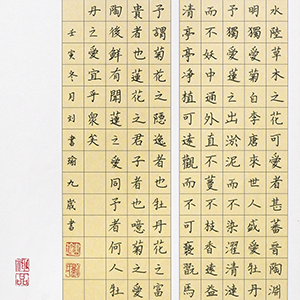 水陸草木之花可愛者甚蕃晉陶淵
明獨愛菊自李唐來世人盛愛牡丹
予獨愛蓮之出淤泥而不染濯清漣
而不妖中通外直不蔓不枝香遠益
清亭亭淨植可遠觀而不可褻翫焉
予謂菊花之隱逸者也牡丹花之富
貴者也蓮花之君子者也噫菊之愛
陶後鮮有聞蓮之愛同予者何人牡
丹之愛宜乎眾矣
壬寅冬月刘書瑜九歲書